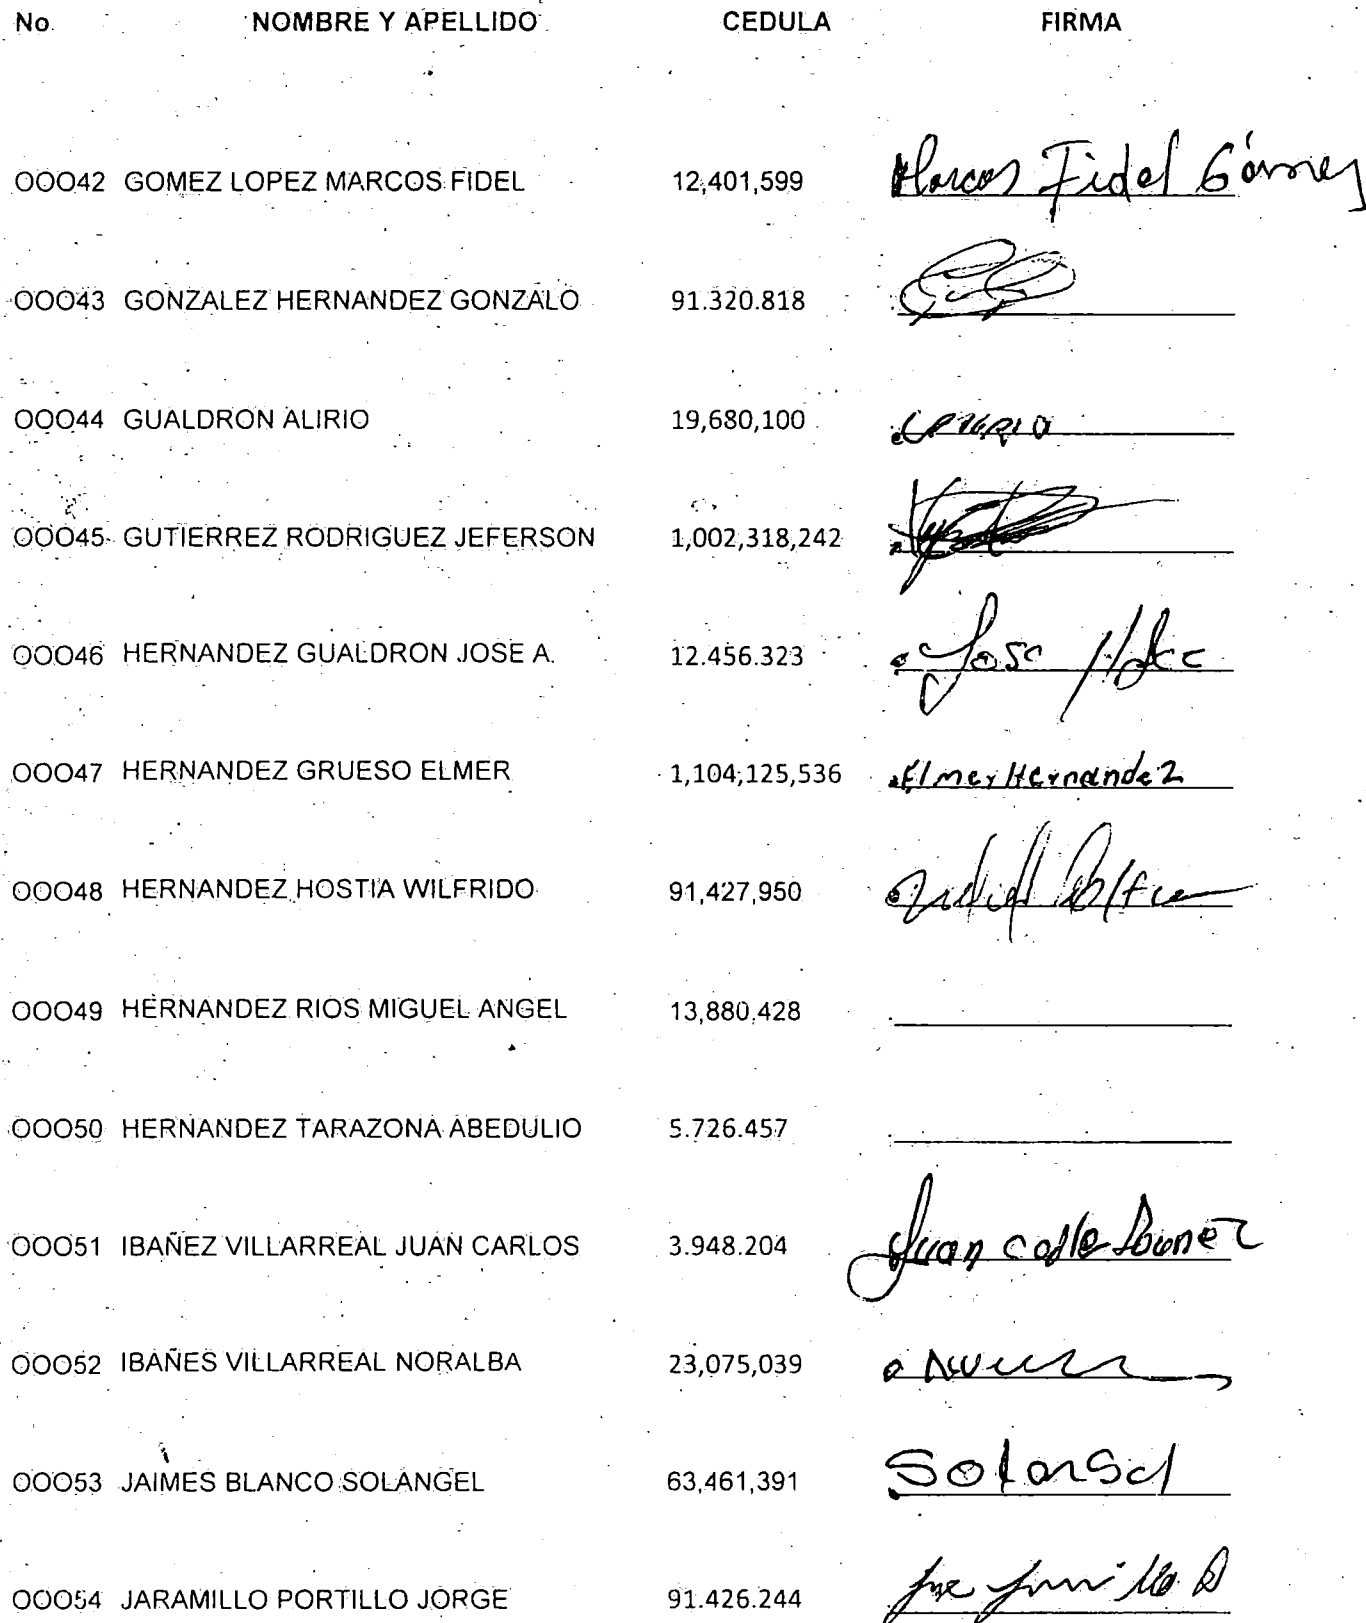 No. NOMBRE Y APELLIDO CEDULA FIRMA
00042 GOMEZ LOPEZ MARCOS FIDEL 12,401,599 Marcos Fidel Gómez
00043 GONZALEZ HERNANDEZ GONZALO 91.320.818
00044 GUALDRON ALIRIO 19,680,100
00045 GUTIERREZ RODRIGUEZ JEFERSON 1,002,318,242
00046 HERNANDEZ GUALDRON JOSE A. 12.456.323 Jose
00047 HERNANDEZ GRUESO ELMER 1,104,125,536 Elmer Hernandez
00048 HERNANDEZ HOSTIA WILFRIDO 91,427,950
00049 HERNANDEZ RIOS MIGUEL ANGEL 13,880,428
00050 HERNANDEZ TARAZONA ABEDULIO 5.726.457
00051 IBAÑEZ VILLARREAL JUAN CARLOS 3.948.204 Juan
00052 IBAÑES VILLARREAL NORALBA 23,075,039
00053 JAIMES BLANCO SOLANGEL 63,461,391
00054 JARAMILLO PORTILLO JORGE 91.426.244